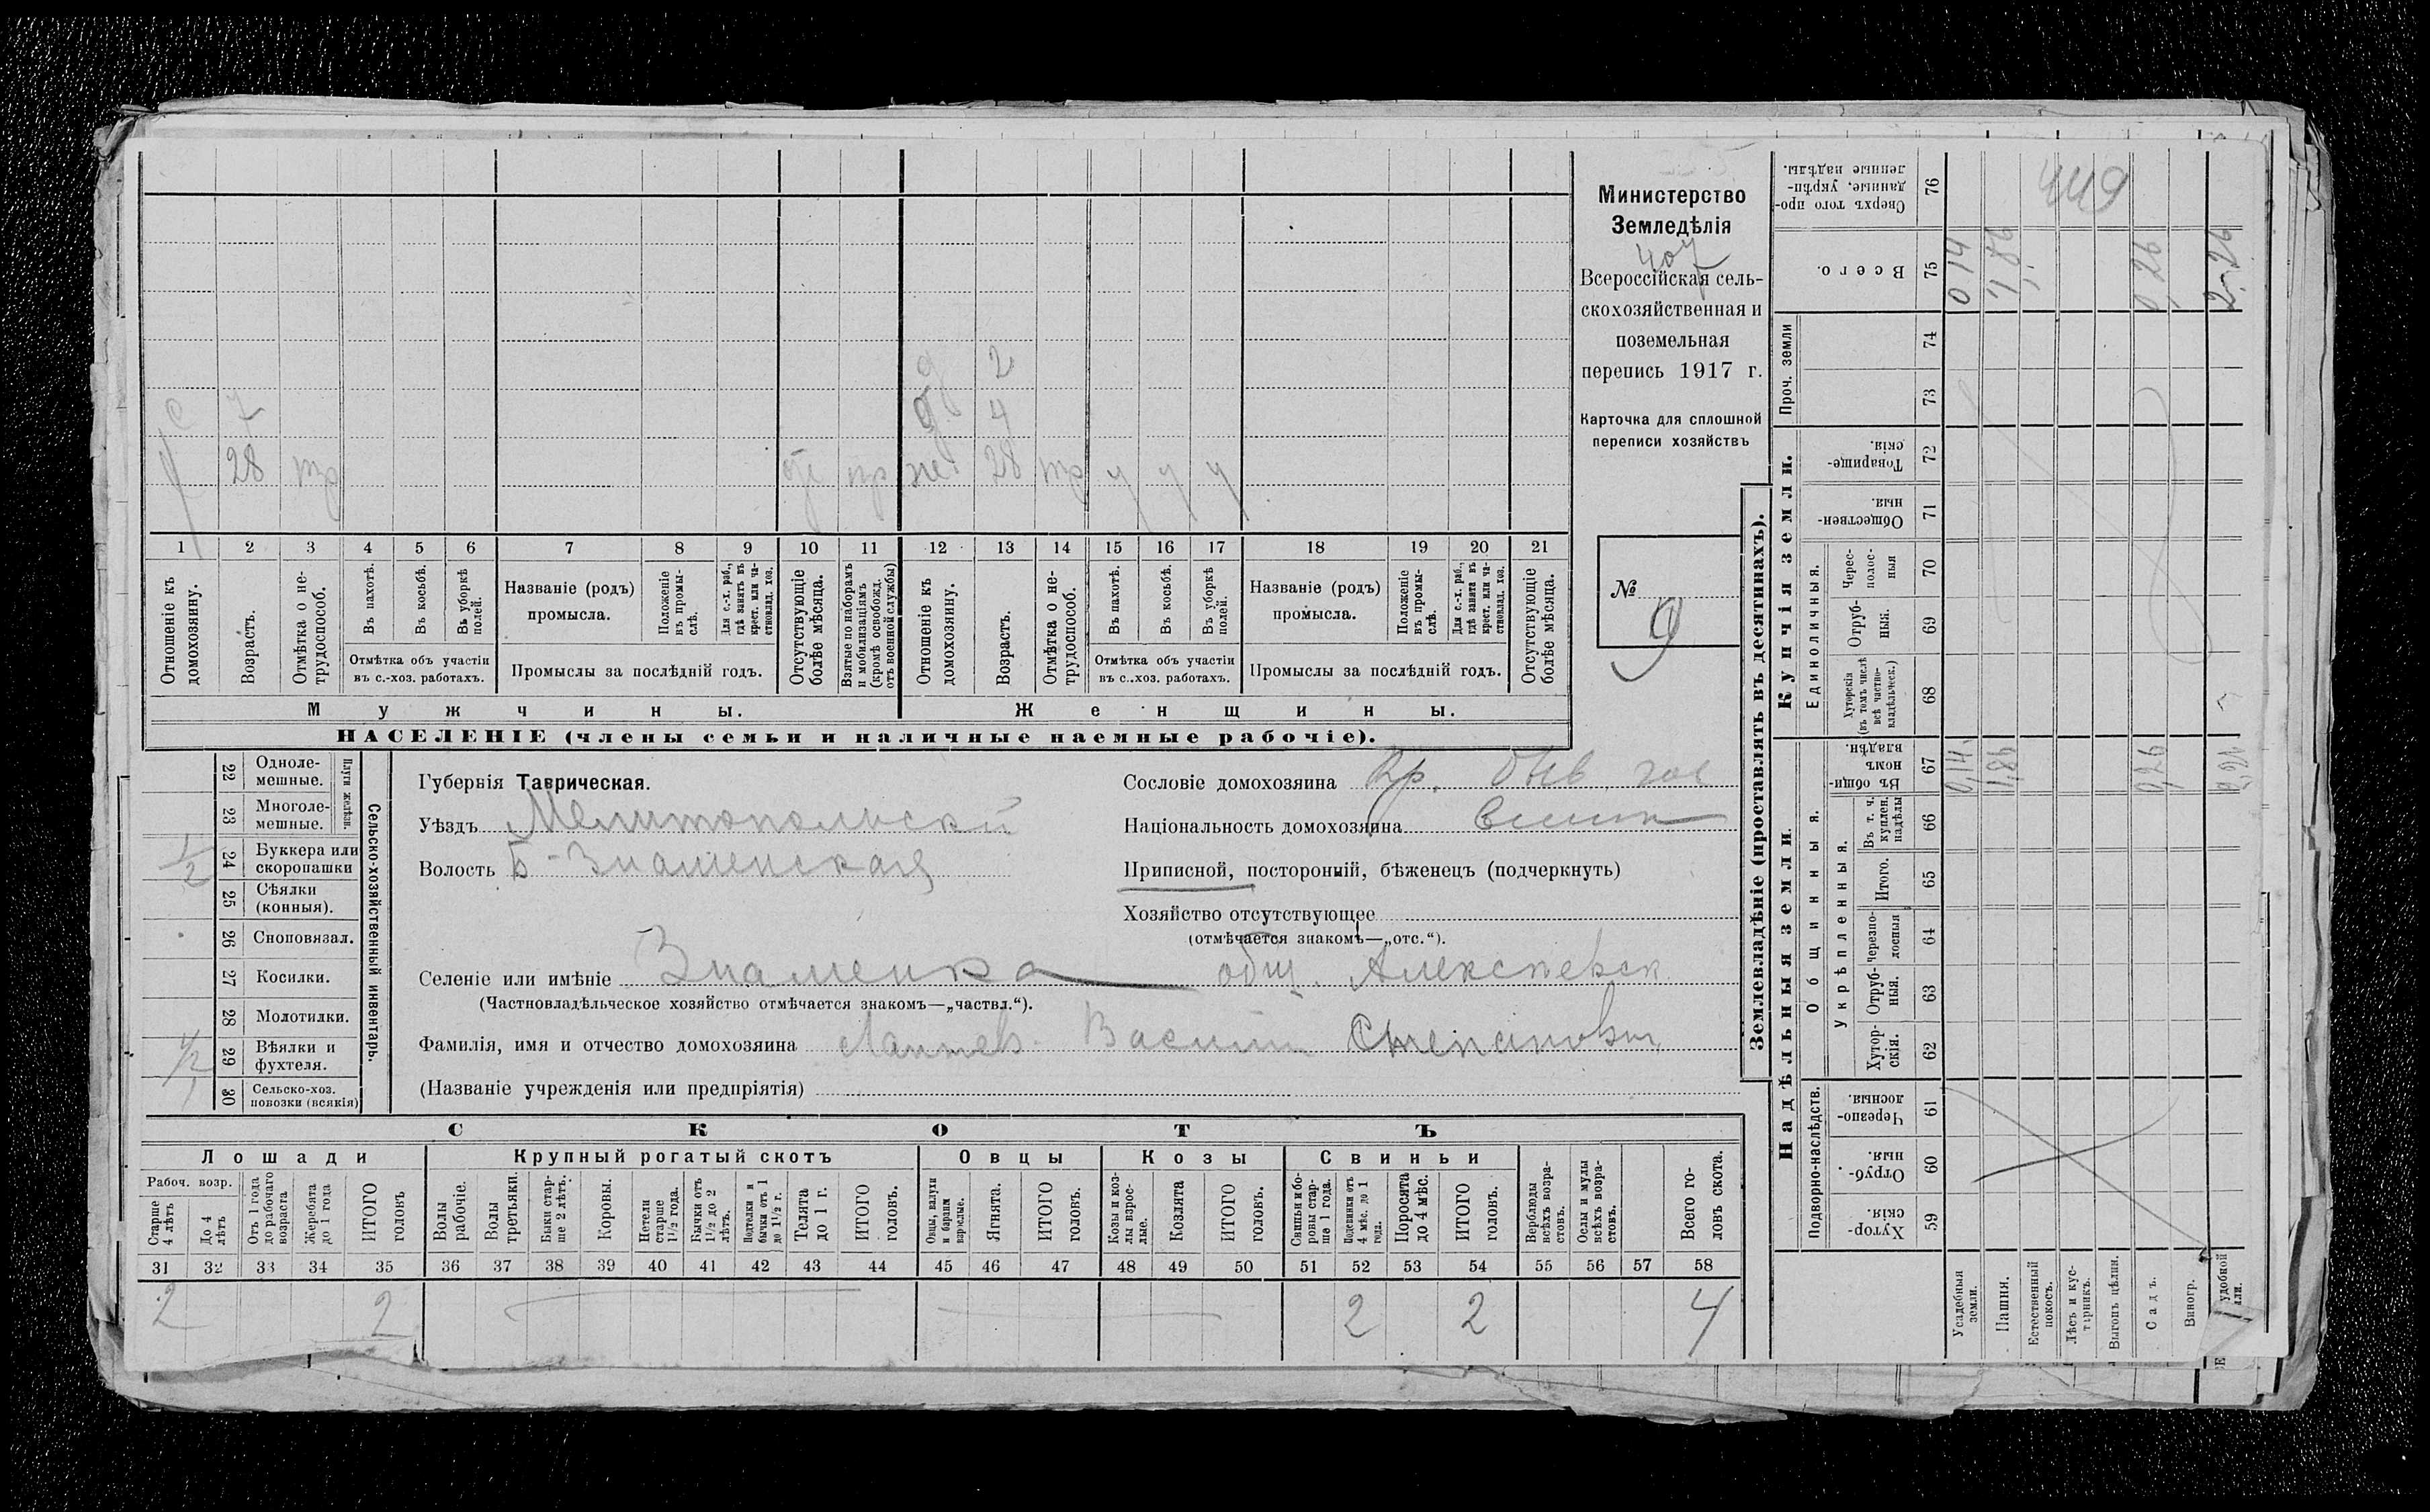 Министерство
Земледѣлія
407
Всероссійская сель-
скохозяйственная и
поземельная
перепись 1917 г.
Карточка для сплошной
переписи хозяйствъ
№
9
д 2
с 7 д 4
28 тр от пр же 28 тр у у у
1 2 3 4 5 6 7 8 9 10 11 12 13 14 15 16 17 18 19 20 21
Отношеніе къ домохозяину.
Возрастъ.
Отмѣтка о не-трудоспособ.
Въ пахотѣ.
Въ косьбѣ.
Въ уборкѣ полей.
Отмѣтка объ участіи
въ с.-хоз. работахъ.
Названіе (родъ)
промысла.
Положеніе въ промы-слѣ.
Для с.-х. раб., гдѣ занятъ въ крест. или ча-стновлад. хоз.
Промыслы за послѣдній годъ.
Отсутствующіе болѣе мѣсяца.
Взятые по наборамъ и мобилизаціямъ (кромѣ освобожд. отъ военной службы)
Отношеніе къ домохозяину.
Возрастъ.
Отмѣтка о не-трудоспособ.
Въ пахотѣ.
Въ косьбѣ.
Въ уборкѣ полей.
Отмѣтка объ участіи
въ с.-хоз. работахъ.
Названіе (родъ)
промысла.
Положеніе въ промы-слѣ.
Для с.-х. раб., гдѣ занята въ крест. или ча-стновлад. хоз.
Промыслы за послѣдній годъ.
Отсутствующіе болѣе мѣсяца.
Мужчины. Женщины.
НАСЕЛЕНІЕ (члены семьи и наличные наемные рабочіе).
Сельско-хозяйственный инвентарь.
Плуги желѣзн.
22 Одноле-мешные.
23 Многоле-мешные.
1/2 24 Буккера или скоропашки
25 Сѣялки (конныя).
26 Сноповязал.
27 Косилки.
28 Молотилки.
1/2 29 Вѣялки и фухтеля.
1 30 Сельско-хоз. повозки (всякія)
Губернія Таврическая.
Уѣздъ Мелитопольскій
Волость Б-Знаменская
Селеніе или имѣніе Знаменка общ. Алексѣевск
(Частновладѣльческое хозяйство отмѣчается знакомъ—„частвл.“).
Фамилія, имя и отчество домохозяина Лаптев Василий Степанович
(Названіе учрежденія или предпріятія)
Сословіе домохозяина Кр. быв. гос
Національность домохозяина
Приписной, посторонній, бѣженецъ (подчеркнуть)
Хозяйство отсутствующее
(отмѣчается знакомъ—„отс.“).
СКОТЪ
Лошади
Рабоч. возр.
Старше 4 лѣтъ
До 4 лѣтъ
Отъ 1 года до рабочаго возраста
Жеребята до 1 года
ИТОГО головъ
Крупный рогатый скотъ
Волы рабочіе.
Волы третьяки.
Быки стар-ше 2 лѣтъ.
Коровы.
Нетели старше 1½ года.
Бычки отъ 1½ до 2 лѣтъ.
Подтелки и бычки отъ 1 до 1½ г.
Телята до 1 г.
ИТОГО головъ.
Овцы
Овцы, валухи и бараны взрослые.
Ягнята.
ИТОГО головъ.
Козы
Козы и коз-лы взрос-лые.
Козлята
ИТОГО головъ.
Свиньи
Свиньи и бо-ровы стар-ше 1 года.
Подсвинки отъ 4 мѣс. до 1 года.
Поросята до 4 мѣс.
ИТОГО головъ.
Верблюды всѣхъ возра-стовъ.
Ослы и мулы всѣхъ возра-стовъ.
Всего го-ловъ скота.
31 32 33 34 35 36 37 38 39 40 41 42 43 44 45 46 47 48 49 50 51 52 53 54 55 56 57 58
2 2 2 2 4
Землевладѣніе (проставлять въ десятинахъ).
Купчія земли.
Надѣльныя земли.
Сверхъ того про-данные, укрѣп-ленные надѣлы. 76
449
Всего. 75
0 14
1,86
0,26
2,26
Проч. земли
74
73
Товарище-скія. 72
Обществен-ныя 71
Единоличныя.
Черес-полос-ныя 70
Отруб-ныя. 69
Хуторскія (въ томъ числѣ всѣ частно-владѣльческ.) 68
Общинныя.
Въ общи-номъ владѣн. 67
0,14
1,86
0,26
Укрѣпленныя.
Въ т. ч. куплен. надѣлы 66
Итого. 65
Черезпо-лосныя 64
Отруб-ныя. 63
Хутор-скія. 62
Подворно-наслѣдств.
Черезпо-лосныя. 61
Отруб-ныя. 60
Хутор-скія. 59
Усадебныя земли.
Пашня.
Естественный покосъ.
Лѣсъ и кус-тарникъ.
Выгонъ цѣлин.
Садъ.
Виногр.
удобной